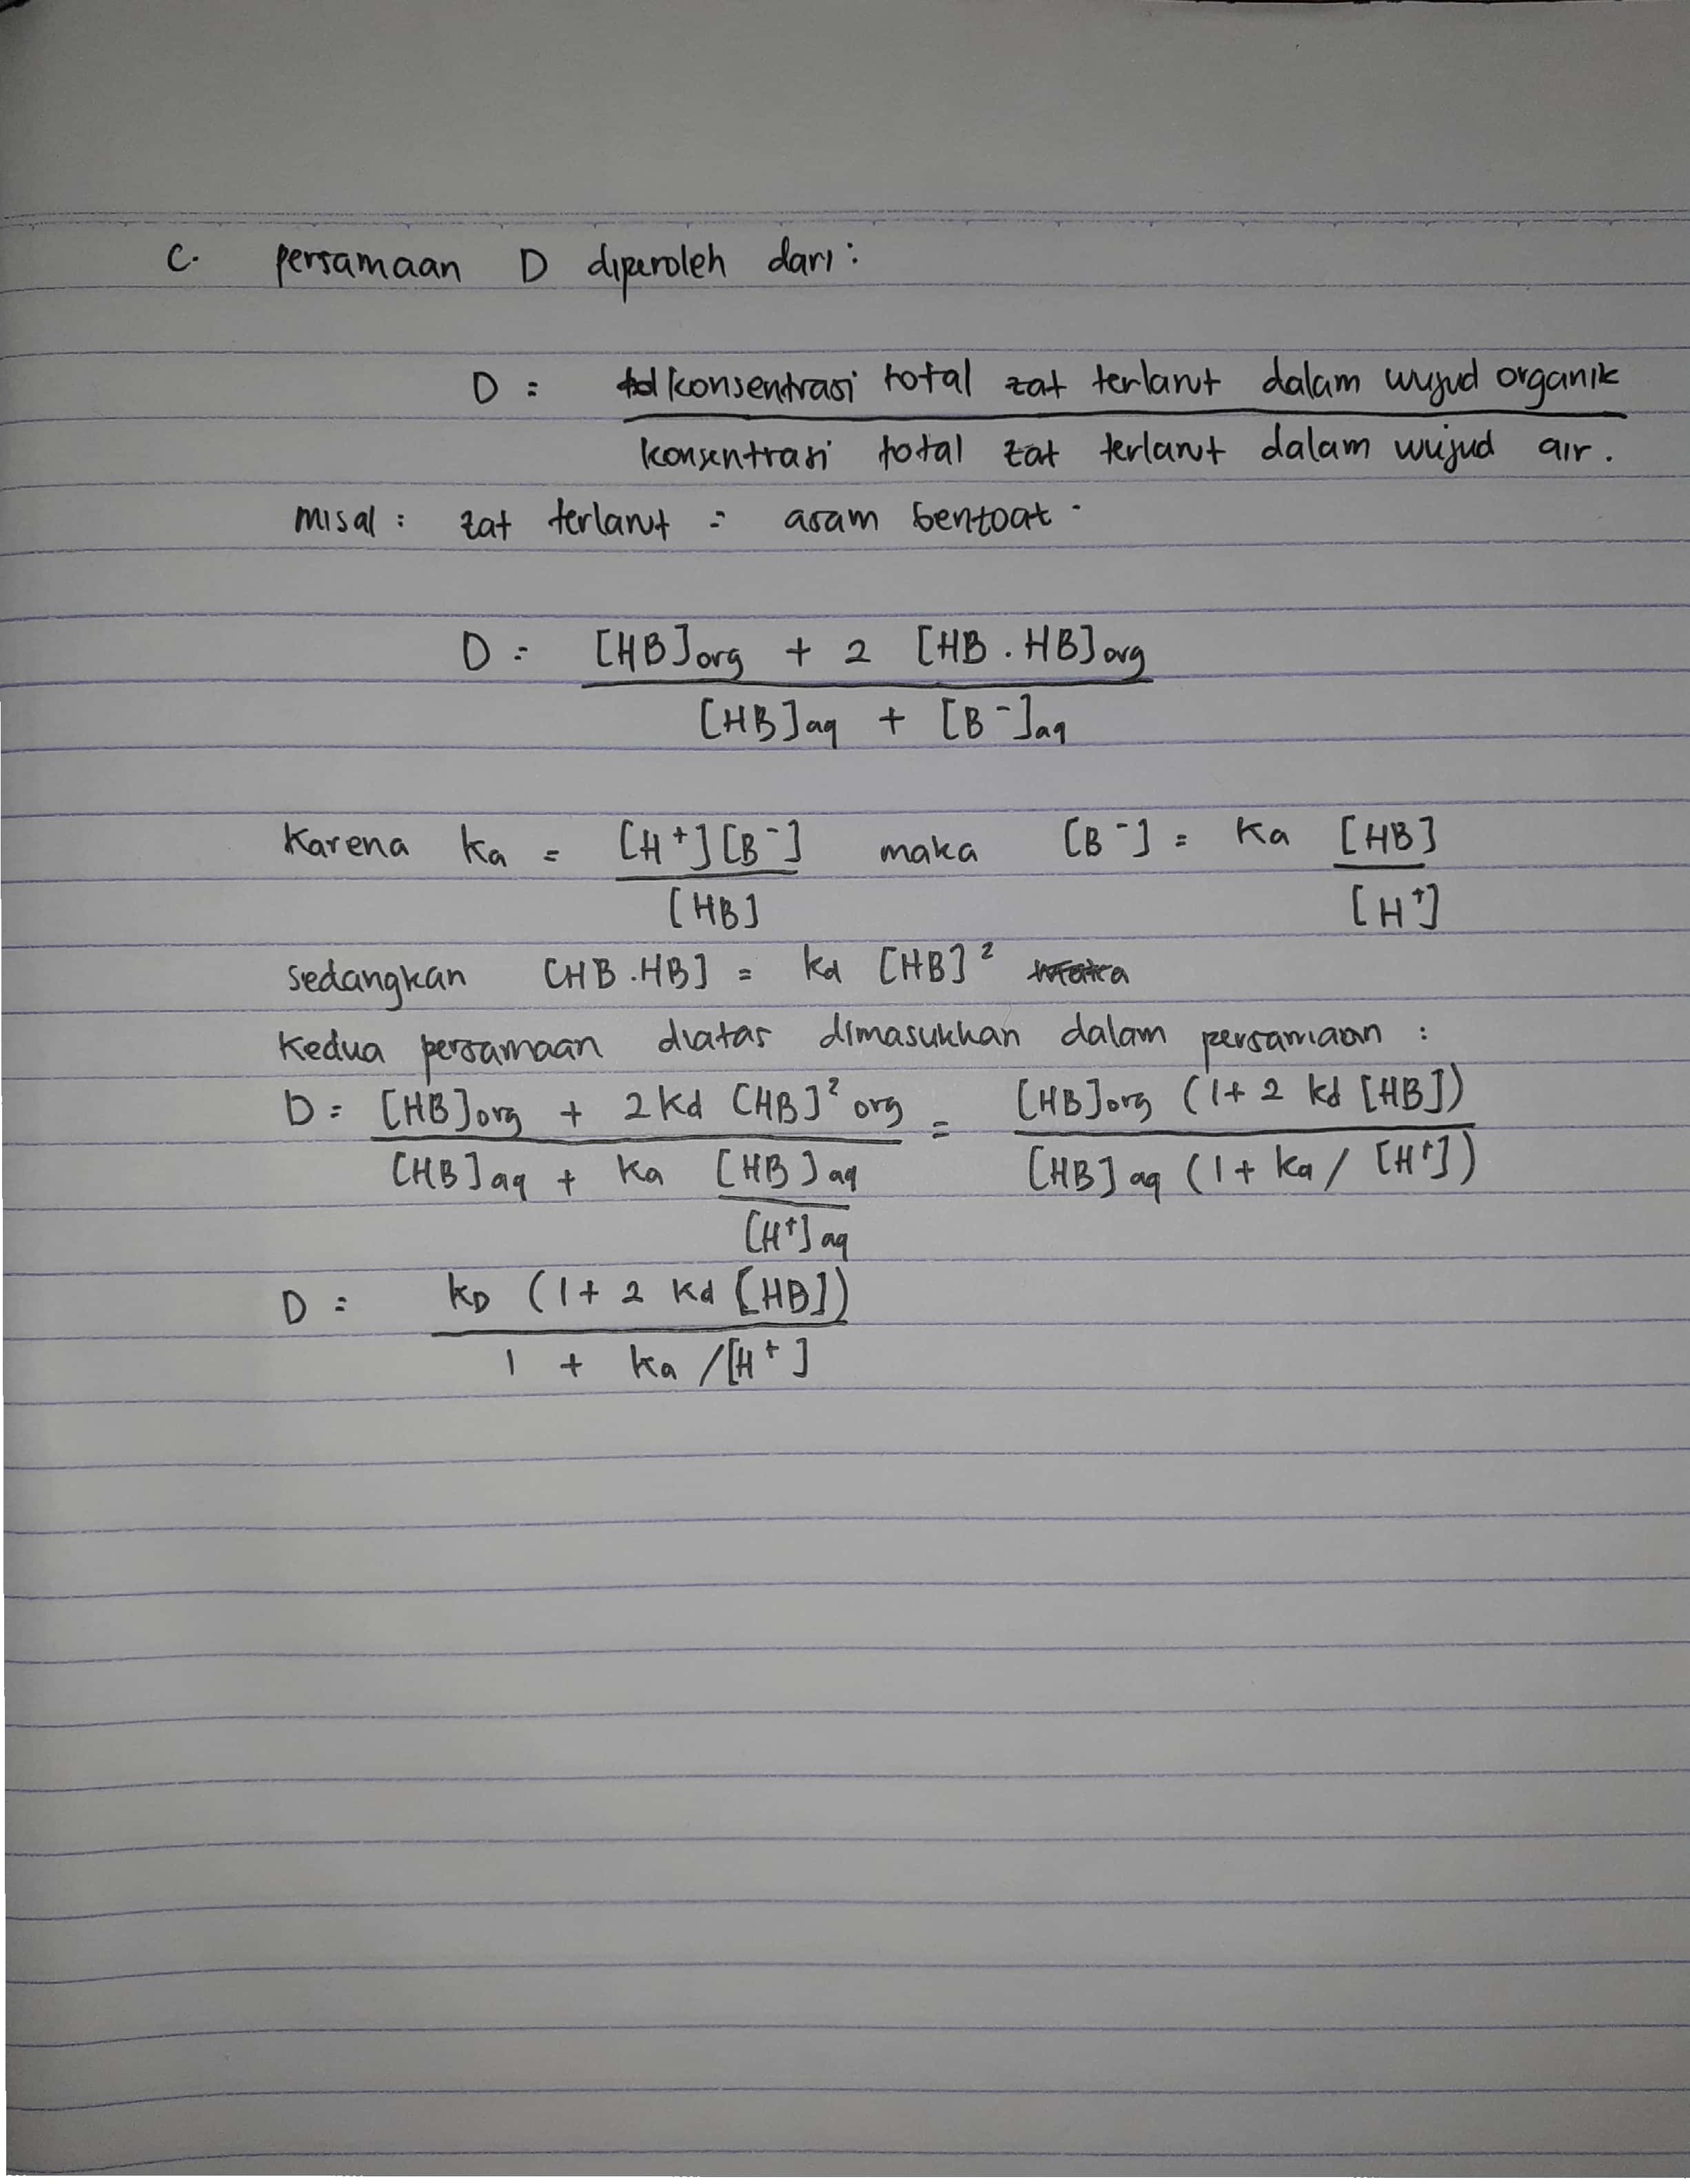 C. persamaan D diperoleh dari :
D = konsentrasi total zat terlarut dalam wujud organik
konsentrasi total zat terlarut dalam wujud air.
misal : zat terlarut = asam benzoat.
D = [HB]org + 2 [HB . HB]org
[HB]aq + [B⁻]aq
Karena Ka = [H⁺][B⁻] maka [B⁻] = Ka [HB]
[HB] [H⁺]
sedangkan [HB.HB] = Kd [HB]²
Kedua persamaan diatas dimasukkan dalam persamaan :
D = [HB]org + 2 Kd [HB]² org = [HB]org (1+ 2 Kd [HB])
[HB]aq + Ka [HB]aq [HB]aq (1+ Ka / [H⁺])
[H⁺]aq
D = KD (1+ 2 Kd [HB])
1 + Ka /[H⁺]